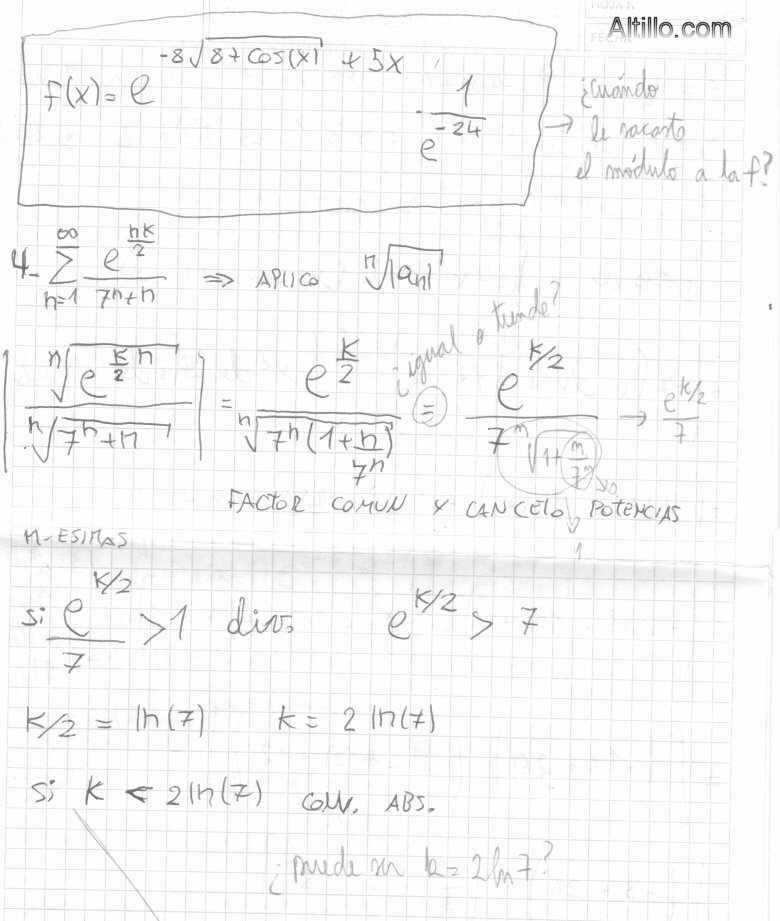 HOJA N.
FECHA
Altillo.com
f(x) = e^(-8√(8 + cos(x)) + 5x) · 1/e^(-24) → ¿cuándo
le sacaste
el módulo a la f?
4- ∑_{n=1}^{∞} e^(nk/2)/(7^n + n) ⇒ APLICO ⁿ√|an|
¿igual o tiende?
| ⁿ√(e^(k/2 n)) / ⁿ√(7^n + n) | = e^(k/2) / ⁿ√(7^n (1 + n/7^n)) = e^(k/2) / (7 ⁿ√(1 + n/7^n)) → e^(k/2)/7
→ 0
FACTOR COMUN Y CANCELO POTENCIAS
↓ 1
n-ESIMAS
si e^(k/2)/7 > 1 div. e^(k/2) > 7
k/2 = ln(7) k = 2 ln(7)
Si k < 2 ln(7) CONV. ABS.
¿puede ser k = 2 ln 7?